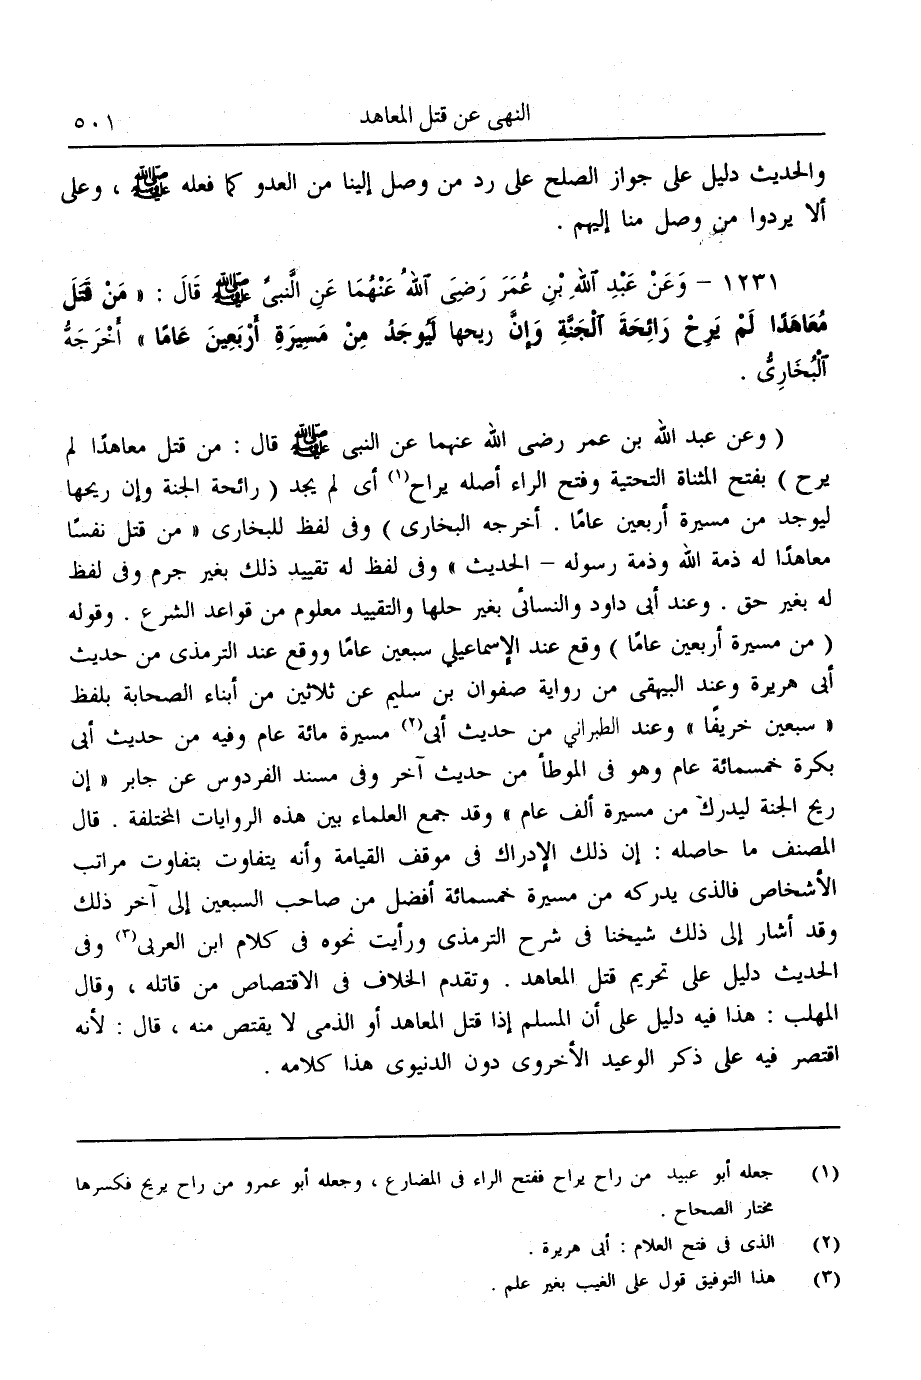 النهى عن قتل المعاهد
٥٠١
والحديث دليل على جواز الصلح على رد من وصل إلينا من العدو كما فعله ﷺ ، وعلى
ألا يردوا من وصل منا إليهم .
١٢٣١ – وَعَنْ عَبْدِ ٱللهِ بْنِ عُمَرَ رَضِىَ ٱللهُ عَنْهُمَا عَنِ الَّنبىِّ ﷺ قَالَ : « مَنْ قَتَلَ
مُعَاهَدًا لَمْ يَرِحْ رَائِحَةَ ٱلْجَنَّةِ وَإِنَّ ريحها لَيُوجَدُ مِنْ مَسِيرَةِ أَرْبَعِينَ عَامًا » أَخْرَجَهُ
ٱلْبُخَارِىُّ .
( وعن عبد الله بن عمر رضى الله عنهما عن النبى ﷺ قال : من قتل معاهدًا لم
يرح ) بفتح المثناة التحتية وفتح الراء أصله يراح(١) أى لم يجد ( رائحة الجنة وإن ريحها
ليوجد من مسيرة أربعين عامًا . أخرجه البخارى ) وفى لفظ للبخارى « من قتل نفسًا
معاهدًا له ذمة الله وذمة رسوله – الحديث » وفى لفظ له تقييد ذلك بغير جرم وفى لفظ
له بغير حق . وعند أبى داود والنسائى بغير حلها والتقييد معلوم من قواعد الشرع . وقوله
( من مسيرة أربعين عامًا ) وقع عند الإسماعيلي سبعين عامًا ووقع عند الترمذى من حديث
أبى هريرة وعند البيهقى من رواية صفوان بن سليم عن ثلاثين من أبناء الصحابة بلفظ
« سبعين خريفًا » وعند الطبراني من حديث أبى(٢) مسيرة مائة عام وفيه من حديث أبى
بكرة خمسمائة عام وهو فى الموطأ من حديث آخر وفى مسند الفردوس عن جابر « إن
ريح الجنة ليدرك من مسيرة ألف عام » وقد جمع العلماء بين هذه الروايات المختلفة . قال
المصنف ما حاصله : إن ذلك الإدراك فى موقف القيامة وأنه يتفاوت بتفاوت مراتب
الأشخاص فالذى يدركه من مسيرة خمسمائة أفضل من صاحب السبعين إلى آخر ذلك
وقد أشار إلى ذلك شيخنا فى شرح الترمذى ورأيت نحوه فى كلام ابن العربى(٣) وفى
الحديث دليل على تحريم قتل المعاهد . وتقدم الخلاف فى الاقتصاص من قاتله ، وقال
المهلب : هذا فيه دليل على أن المسلم إذا قتل المعاهد أو الذمى لا يقتص منه ، قال : لأنه
اقتصر فيه على ذكر الوعيد الأخروى دون الدنيوى هذا كلامه .
(١) جعله أبو عبيد من راح يراح ففتح الراء فى المضارع ، وجعله أبو عمرو من راح يريح فكسرها
مختار الصحاح .
(٢) الذى فى فتح العلام : أبى هريرة .
(٣) هذا التوفيق قول على الغيب بغير علم .